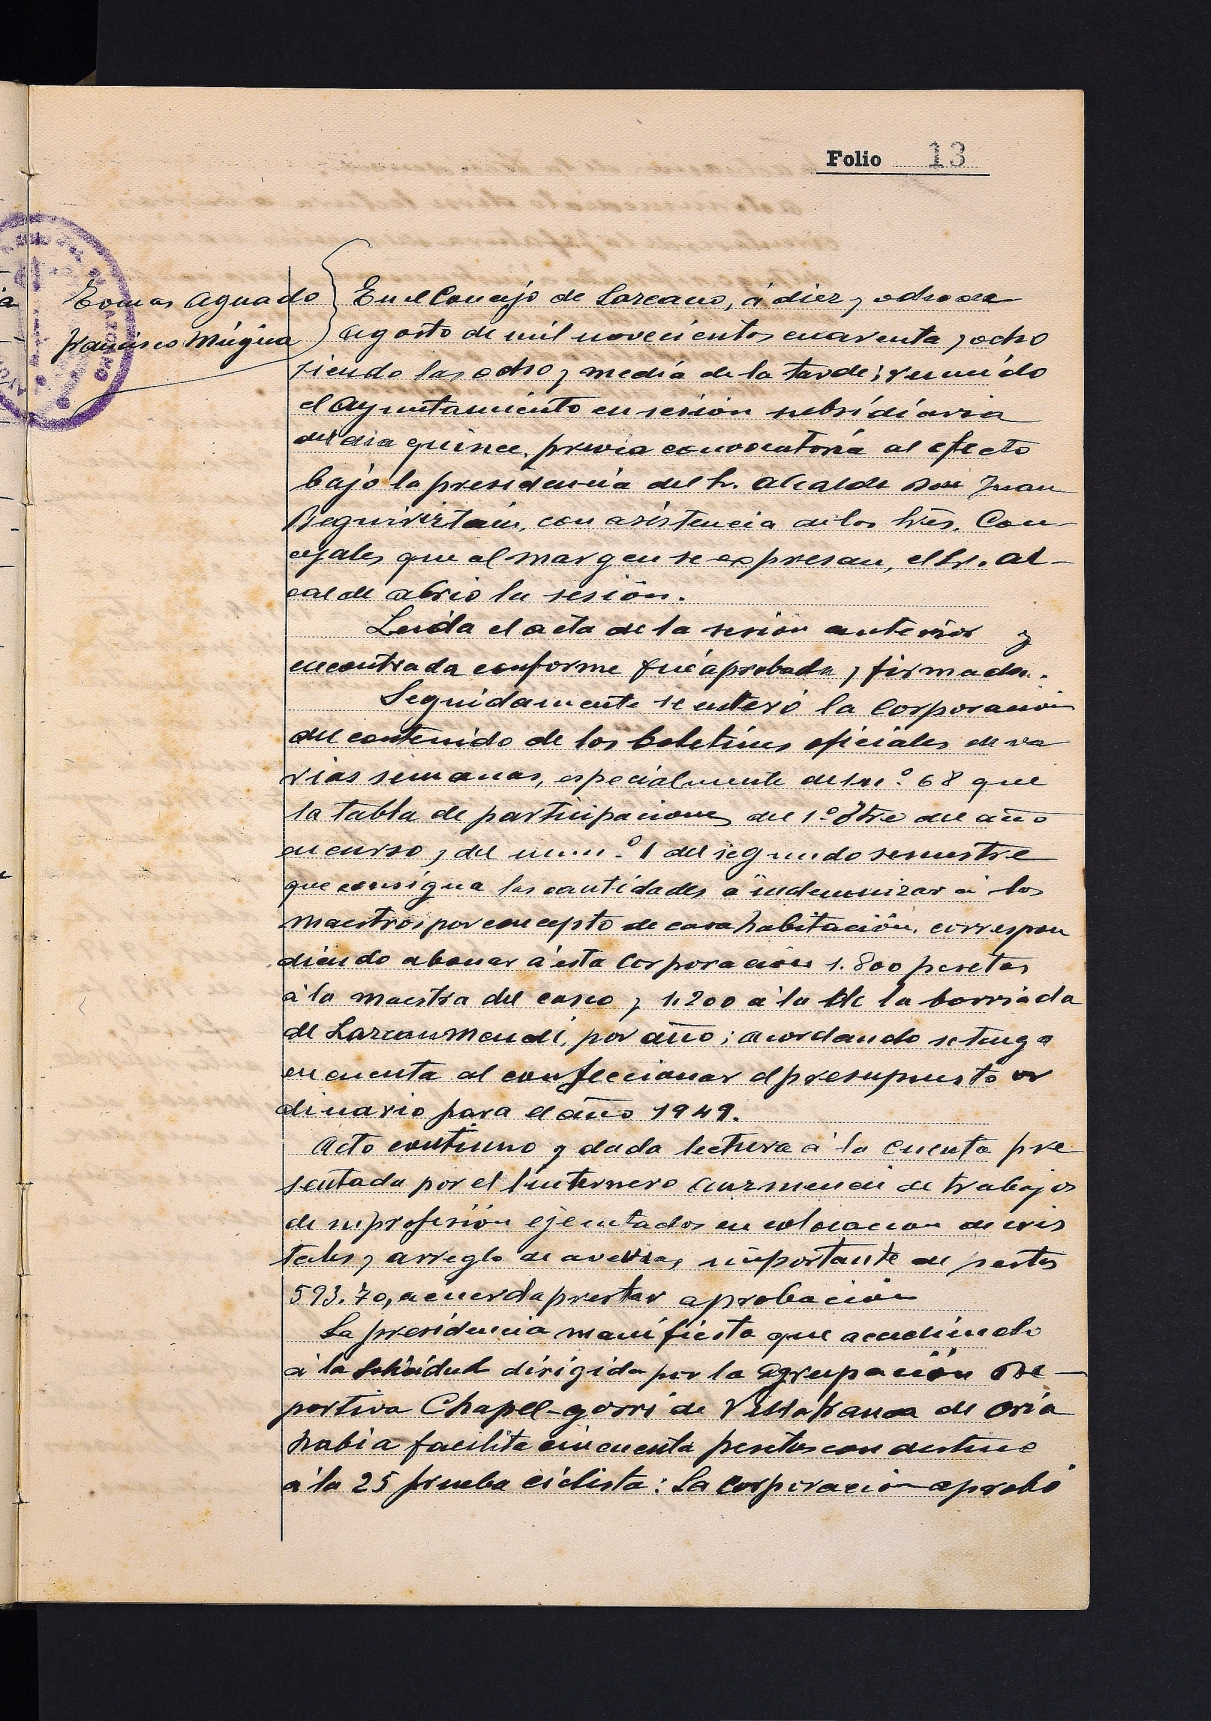 Folio 13
Tomas Aguado
Francisco Múgica
En el Concejo de Lazcano, á diez y ocho de
agosto de mil novecientos cuarenta y ocho
siendo las ocho y media de la tarde; reunido
el Ayuntamiento en sesión subsidiaria
del dia quince, previa convocatoria al efecto
bajo la presidencia del Sr. Alcalde Don Juan
con asistencia de los Sres. Con-
cejales que al margen se expresan, el Sr. Al-
calde abrio la sesión.
Leida el acta de la sesion anterior y
encontrada conforme fué aprobada y firmada.
Seguidamente se enteró la Corporacion
del contenido de los boletines oficiales de va
rias semanas, especialmente del nº 68 que
la tabla de participaciones del 1º Stre del año
en curso y del num.º 1 del segundo semestre
que consigna las cantidades a indemnizar á los
maestros por concepto de casa habitación, correspon
diendo abonar á esta Corporacion 1.800 pesetas
á la maestra del casco y 1.200 á la de la barriada
de Lazcaumendi, por año; acordando se tenga
en cuenta al confeccionar el presupuesto or
dinario para el año 1949.
Acto continuo y dada lectura á la cuenta pre
sentada por el linternero de trabajos
de su profesión ejecutados en colocacion de cris
tales y arreglo de averias, importante de pestas
593.70, acuerda prestar aprobacion
La presidencia manifiesta que accediendo
á la solicitud dirigida por la Agrupación De-
portiva Chapel-gorri de Villafranca de Oria
habia facilita cincuenta pesetas con destino
á la 25 prueba ciclista: La Corporacion aprobó